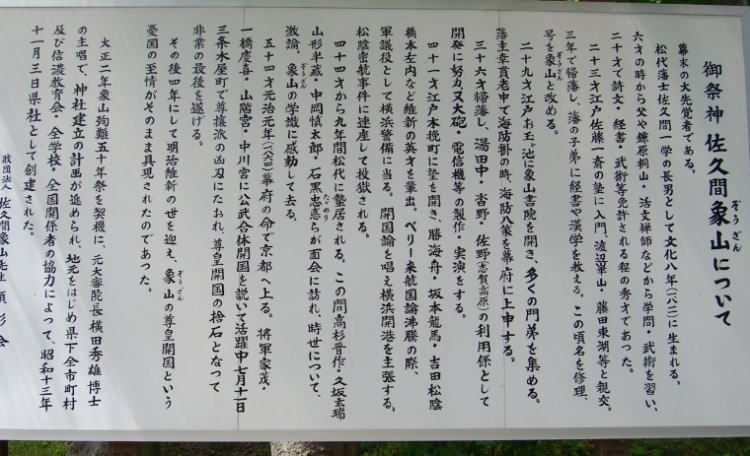 御祭神 佐久間象山について
ぞうざん
幕末の大先覚者である。
松代藩士佐久間一学の長男として文化八年(一八一一)に生まれる。
六才の時から父や鎌原桐山・活文禅師などから学問・武術を習い、
二十才で詩文・経書・武術等免許される程の秀才であった。
二十三才江戸佐藤一斎の塾に入門、渡辺崋山・藤田東湖等と親交。
三年で帰藩し、藩の子弟に経書や漢学を教える。この頃名を修理、
号を象山と改める。
二十九才江戸お玉ヶ池に象山書院を開き、多くの門弟を集める。
藩主幸貫老中で海防掛の時、海防八策を幕府に上申する。
三十六才帰藩し、湯田中・沓野・佐野(志賀高原)の利用係として
開発に努力又大砲・電信機等の製作・実演をする。
四十一才江戸木挽町に塾を開き、勝海舟・坂本龍馬・吉田松陰
橋本左内など維新の英才を輩出。ペリー来航国論沸騰の際、
軍議役として横浜警備に当る。開国論を唱え横浜開港を主張する。
松陰密航事件に連座して投獄される。
四十四才から九年間松代に蟄居される。この間高杉晋作・久坂玄瑞
山形半蔵・中岡慎太郎・石黒忠悳らが面会に訪れ、時世について、
ただのり
激論。象山の学識に感動して去る。
ぞうざん
五十四才元治元年(一八六四)幕府の命で京都へ上る。将軍家茂・
一橋慶喜・山階宮・中川宮に公武合体開国を説いて活躍中七月十一日
三条木屋町で尊攘派の凶刃にたおれ、尊皇開国の捨石となって
非業の最後を遂げる。
その後四年にして明治維新の世を迎え、象山の尊皇開国という
ぞうざん
憂国の至情がそのまま具現されたのであった。
大正二年象山殉難五十年祭を契機に、元大審院長横田秀雄博士
の主唱で、神社建立の計画が進められ、地元をはじめ県下全市町村
及び信濃教育会・全学校・全国関係者の協力によって、昭和十三年
十一月三日県社として創建された。
財団法人 佐久間象山先生顕彰会